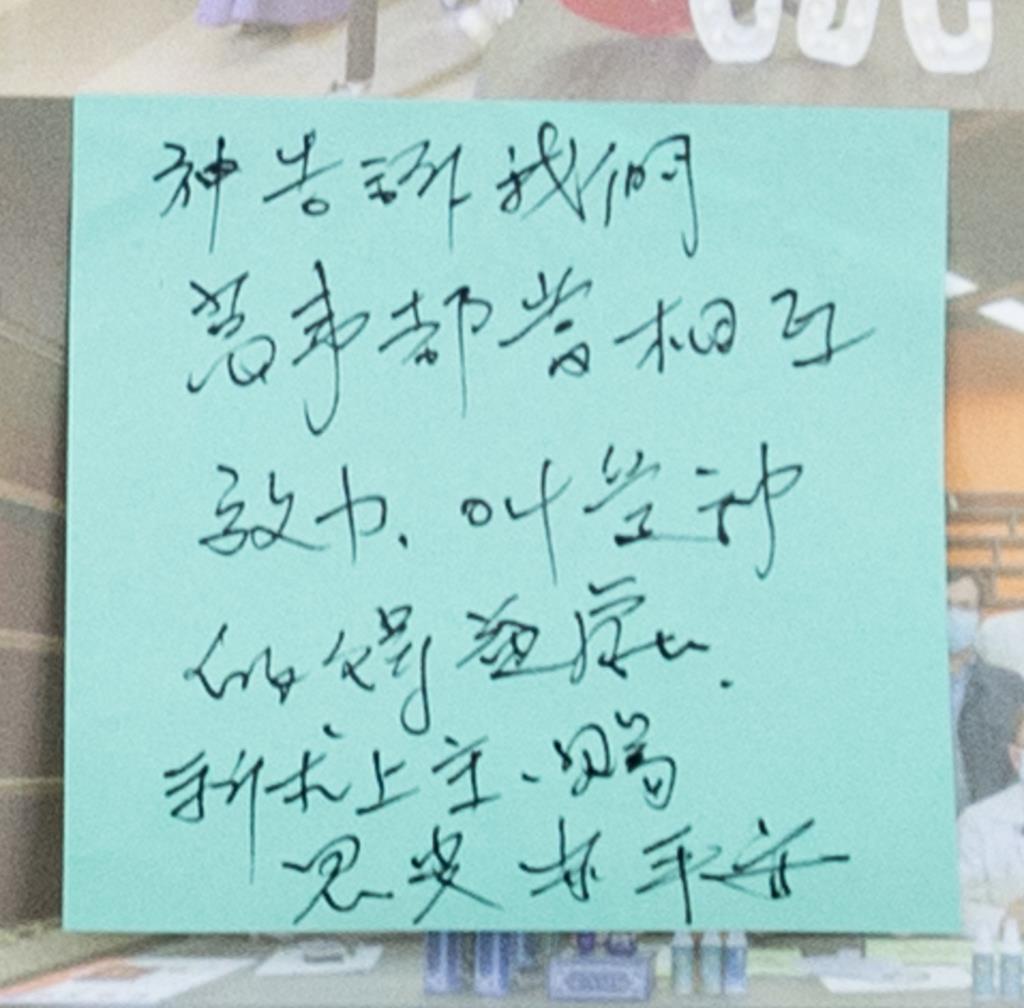 神告訴我們
萬事都相互
效力、叫愛神
的人得益處.
祈求上主、賜
恩典平安